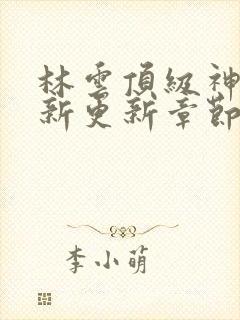 林雲頂級神
新更新章節
李小萌